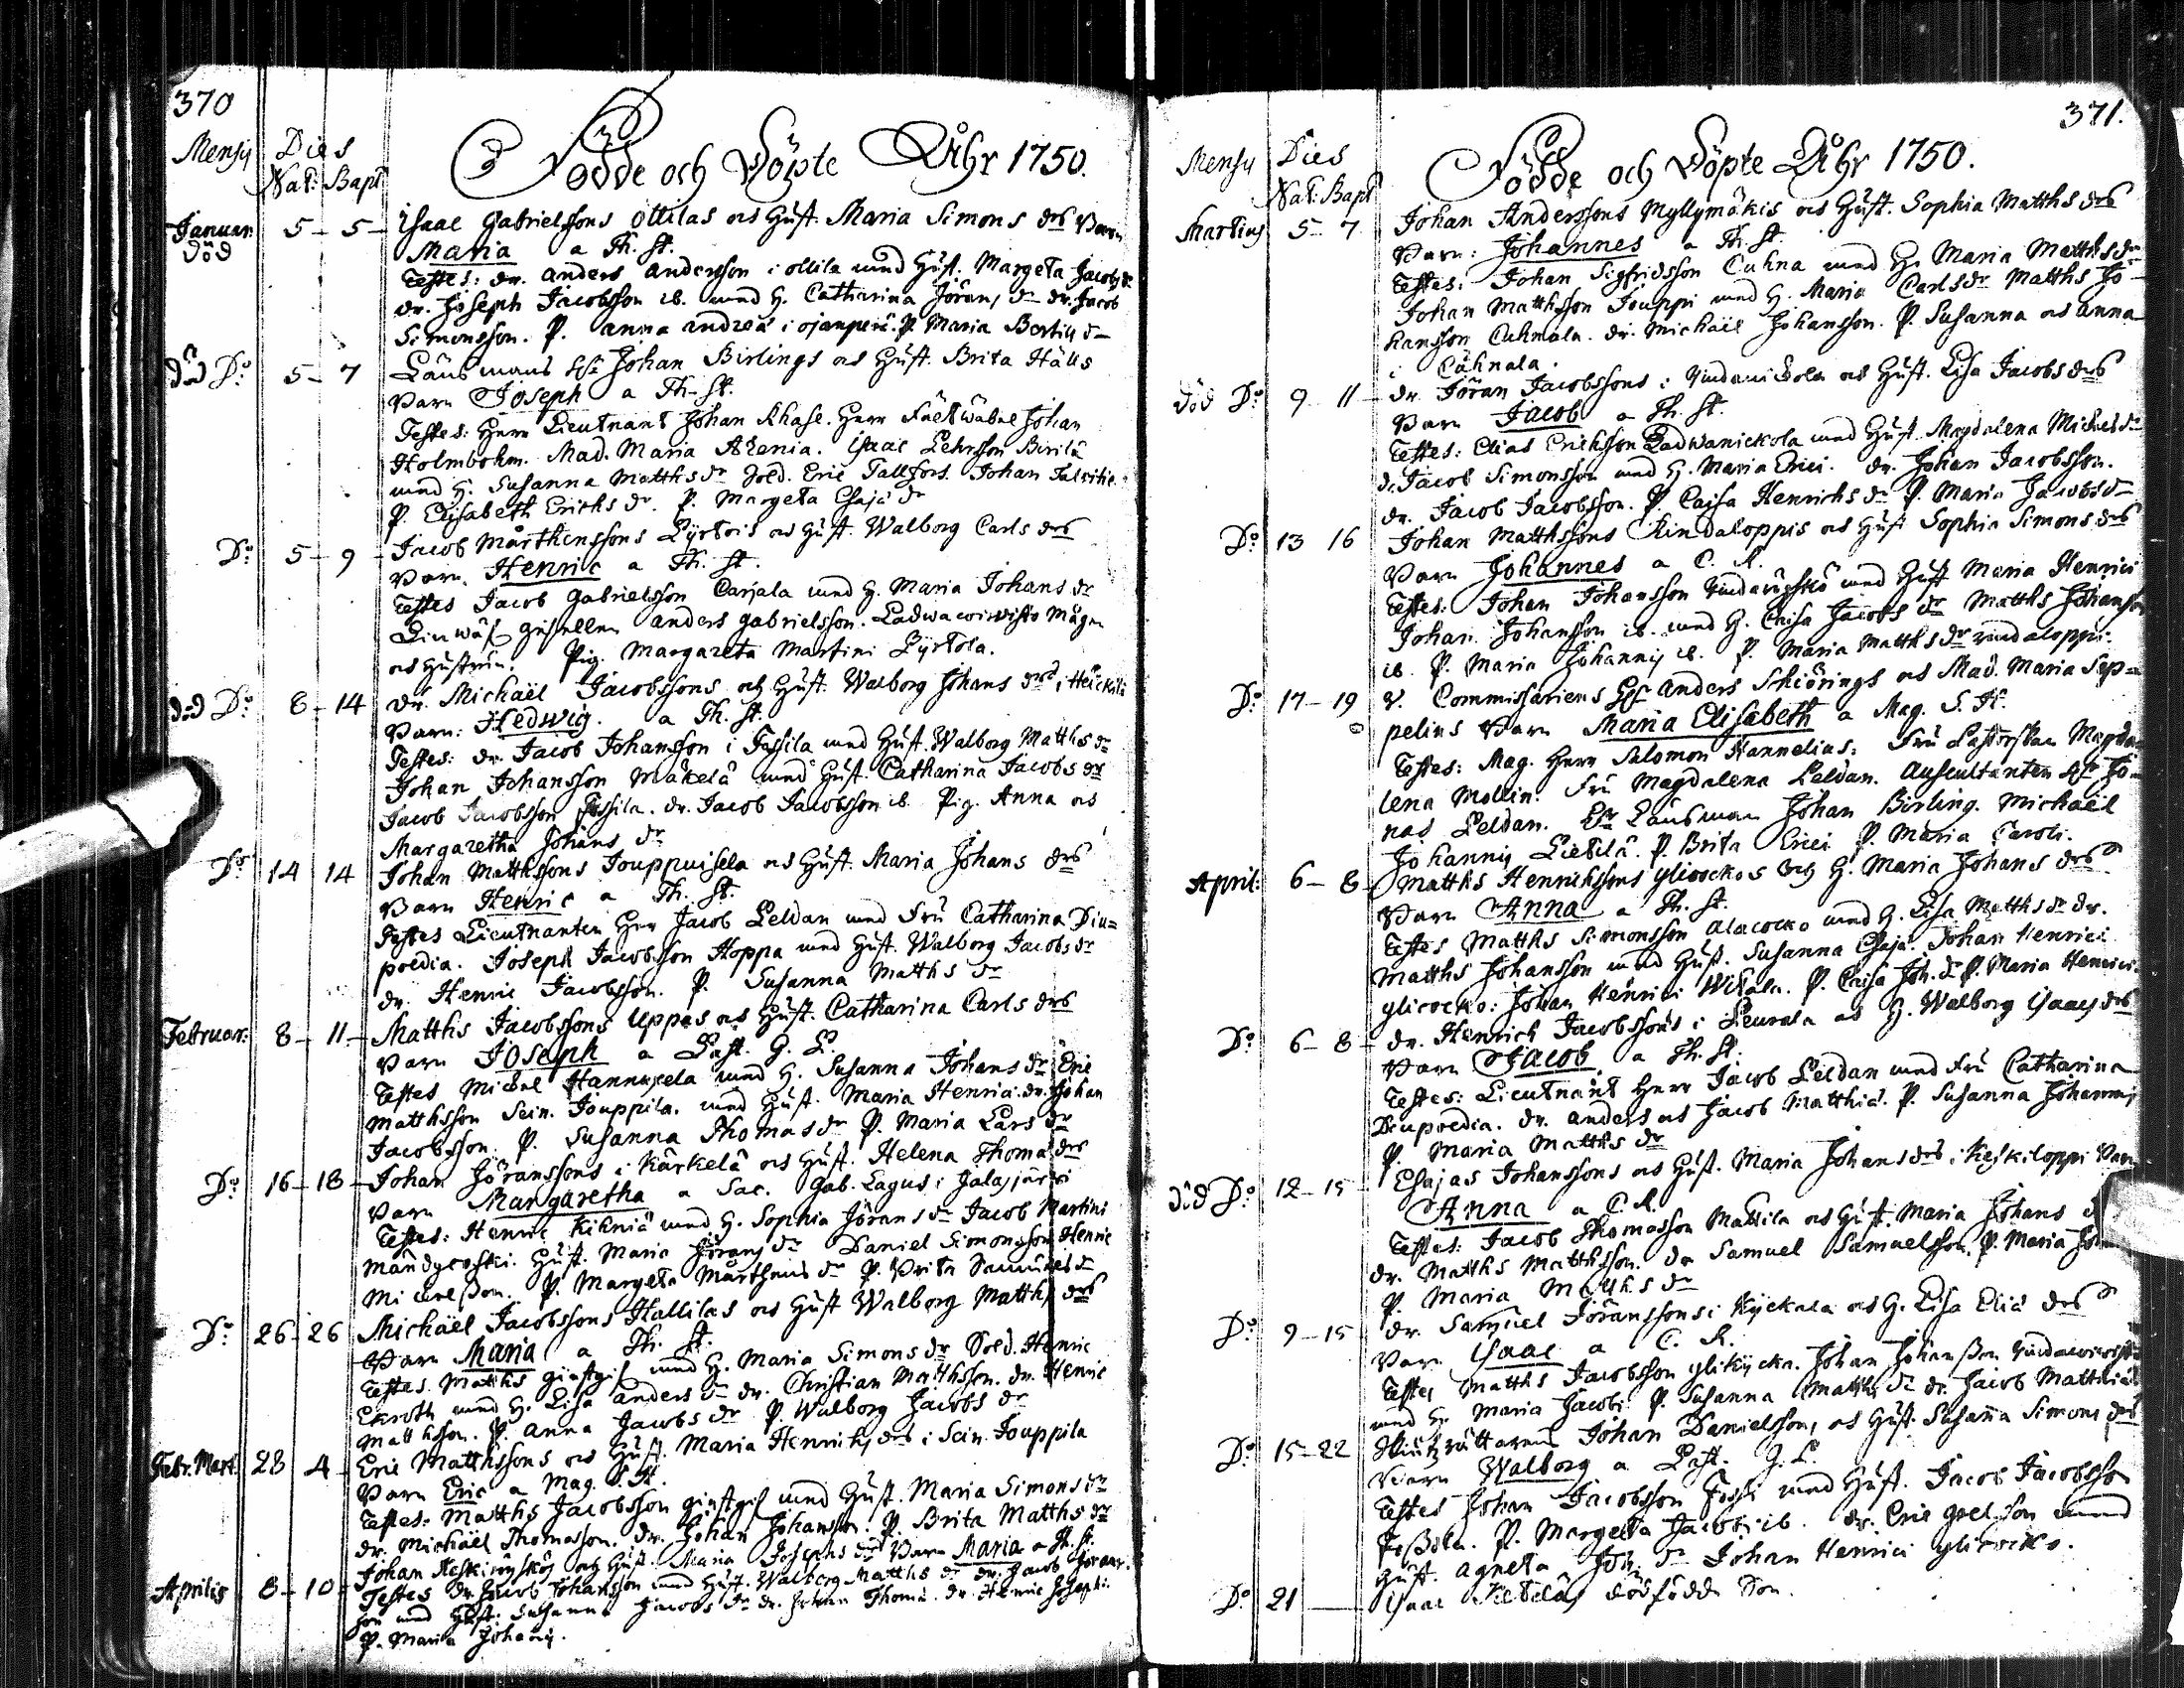 370
Mensis Dies
Nat: Bapt
Födde och Döpte Åhr 1750.
Januar. 5 - 5 - Isaac Gabrielssons Ollilas och Hust. Maria Simons drs Barn
död Maria a Th. St.
Testes: dr. Anders Andersson i Ollila med Hust. Margeta Jacobs dr
dr. Joseph Jacobsson ib. med H. Catharina Jörans dr dr. Jacob
Simonsson. P. Anna Andreæ i Ojanperä. P. Maria Bertils dr
död Do 5 - 7 Länsmans Johan Birlings och Hust. Brita Hälls
Barn Joseph a Th. St.
Testes: Herr Lieutnant Johan Khase. Herr Fältwäbel Johan
Holmbohm. Mad. Maria Alenia. Isaac Lehrsson Birilä
med H. Susanna Matths dr Sold. Eric Tallfors. Johan Talvitie
P. Elisabeth Erichs dr. P. Margeta Esajæ dr
Do 5 - 9 - Jacob Mårthenssons Pyrtois och Hust. Walborg Carls drs
Barn. Henric a Th. St.
Testes Jacob Gabrielsson Carjala med H. Maria Johans dr
gesellen Anders Gabrielsson. Mågen
och Hustrun. Pig. Margareta Martini Pyrtola.
död Do 8 - 14 dr. Michaël Jacobssons och Hust. Walborg Johans drs i Heickilä
Barn: Hedwig. a Th. St.
Testes: dr. Jacob Johansson i Fossila med Hust. Walborg Matths dr
Johan Johansson Mäkelä med Hust. Catharina Jacobs dr
Jacob Jacobsson Fossila. dr. Jacob Jacobsson ib. Pig. Anna och
Margaretha Johans dr
Do 14 14 Johan Matthssons Jouppuisela och Hust. Maria Johans drs
Barn Henric a Th. St.
Testes Lieutnanten Herr Jacob Peldan med Fru Catharina Diu=
poedia. Joseph Jacobsson Hoppa med Hust. Walborg Jacobs dr
dr. Henric Jacobsson. P. Susanna Matths dr
Februar: 8 - 11 - Matths Jacobssons Uppas och Hust. Catharina Carls drs
Barn Joseph a Past. G. P.
Testes Michel Hannuxela med H. Susanna Johans dr Eric
Matthsson Sein. Jouppila. med Hust. Maria Henrici. dr. Johan
Jacobsson. P. Susanna Thomas dr P. Maria Lars dr
Do 16 - 18 - Johan Jöranssons i Kärkelä och Hust. Helena Thomæ drs
Barn Margaretha a Sac. Gab. Lagus i Jalasjärvi
Testes: Henric Kihniä med H. Sophia Jörans dr Jacob Martini
Mändycoski. Hust. Maria Jörans dr Daniel Simonsson Henric
Michelsson. P. Margeta Mårthens dr P. Brita Samuels dr
Do 26 - 26 Michaël Jacobssons Hallilas och Hust Walborg Matths drs
Barn Maria a Th. St.
Testes. Matths giestgif med H. Maria Simons dr Sold. Henric
Ekroth med H. Lisa Anders dr dr. Christian Matthsson. dr. Henric
Matthsson. P. Anna Jacobs dr P. Walborg Jacobs dr
Febr. Mart. 28 4 - Eric Matthssons och Hust. Maria Henrichs drs i Sein. Jouppila
Barn Eric a Mag. S. H.
Testes: Matths Jacobsson giestgif med Hust. Maria Simons dr
dr. Michaël Thomasson. dr. Johan Johansson. P. Brita Matths dr
Aprilis 8 - 10 - Johan och Hust. Maria Josephs drs Barn Maria a Th. St.
Testes dr. Jacob Johansson med Hust. Walborg Matths dr dr. Jacob Jörans
son med Hust. Susanna Jacobs dr dr. Johan Thomæ. dr. Henric Josephi
P. Maria Johannis.
371.
Mensis Dies
Nat: Bapt
Födde och Döpte Åhr 1750.
Martius 5 - 7 Johan Anderssons Myllymäkis och Hust. Sophia Matths drs
Barn: Johannes a Th. St.
Testes: Johan Sigfridsson Cuhna med H. Maria Matths dr
Johan Matthsson Jouppi med H. Maria Carls dr Matths Jo-
hansson Cuhnala. dr. Michaël Johansson. P. Susanna och Anna
i Cuhnala.
död Do 9 - 11 - dr. Jöran Jacobssons i och Hust. Lisa Jacobs drs
Barn Jacob a Th. St.
Testes: Elias Erichsson med Hust. Magdalena Michels dr
dr. Jacob Simonsson med H. Maria Erici. dr. Johan Jacobsson.
dr. Jacob Jacobsson. P. Caisa Henrichs dr P. Maria Jacobs dr
Do 13 16 Johan Matthssons Rindaloppis och Hust Sophia Simons drs
Barn Johannes a C. R.
Testes: Johan Johansson med Hust Maria Henrici
Johan Johansson ib. med H. Caisa Jacobs dr Matths Johansson
ib. P. Maria Johannis ib. P. Maria Matths dr rindaloppi.
Do 17 - 19 V. Commissariens Anders Schörings och Mad. Maria Sep=
pelius Barn Maria Elisabeth a Mag. S. H.
Testes: Mag. Herr Salomon Hannelius. Fru Pastorskan Magda
lena Mollin. Fru Magdalena Peldan. Auscultanten Jo=
nas Peldan. Länsman Johan Birling. Michaël
Johannis Pietilä. P. Brita Erici P. Maria Caroli.
April: 6 - 8 - Matths Henrichssons Ylicockos och H. Maria Johans drs
Barn Anna a Th. St.
Testes Matths Simonsson Alacocko med H. Lisa Matths dr dr.
Matths Johansson med Hust. Susanna Esajæ. Johan Henrici
Ylicocko: Johan Henrici Wikala. P. Caisa Joh. dr P. Maria Henrici.
Do 6 - 8 - dr. Henrich Jacobssons i Leurala och H. Walborg Isaacs drs
Barn Jacob a Th. St.
Testes: Lieutnant Herr Jacob Peldan med Fru Catharina
Diupoedia. dr. Anders och Jacob Matthiæ. P. Susanna Johannis
P. Maria Matths dr
död Do 12 - 15 - Esajas Johanssons och Hust. Maria Johans drs i Keskiloppi Barn
Anna a C. R.
Testes: Jacob Thomasson Mattila och Hust. Maria Johans
dr. Matths Matthsson. dr Samuel Samuelsson. P. Maria
P. Maria Matths dr
Do 9 - 15 dr. Samuel Jöranssons i Kyckala och H. Lisa Eliæ drs
Barn Isaac a C. R.
Testes Matths Jacobsson Ylikycka. Johan Johansson
med H. Maria Jacobi P. Susanna Matths dr dr. Jacob Matthiæ
Do 15 - 22 Johan Danielssons och Hust. Susanna Simons drs
Barn Walborg a Past. G. P.
Testes Johan Jacobsson Fossi med Hust. Jacob Jacobsson
Fossila. P. Margeta Jacobi ib. dr. Eric med
Hust. Agneta Joh. dr Johan Henrici Ylicocko.
Do 21 — Isaac Pietiläs dödfödde Son.